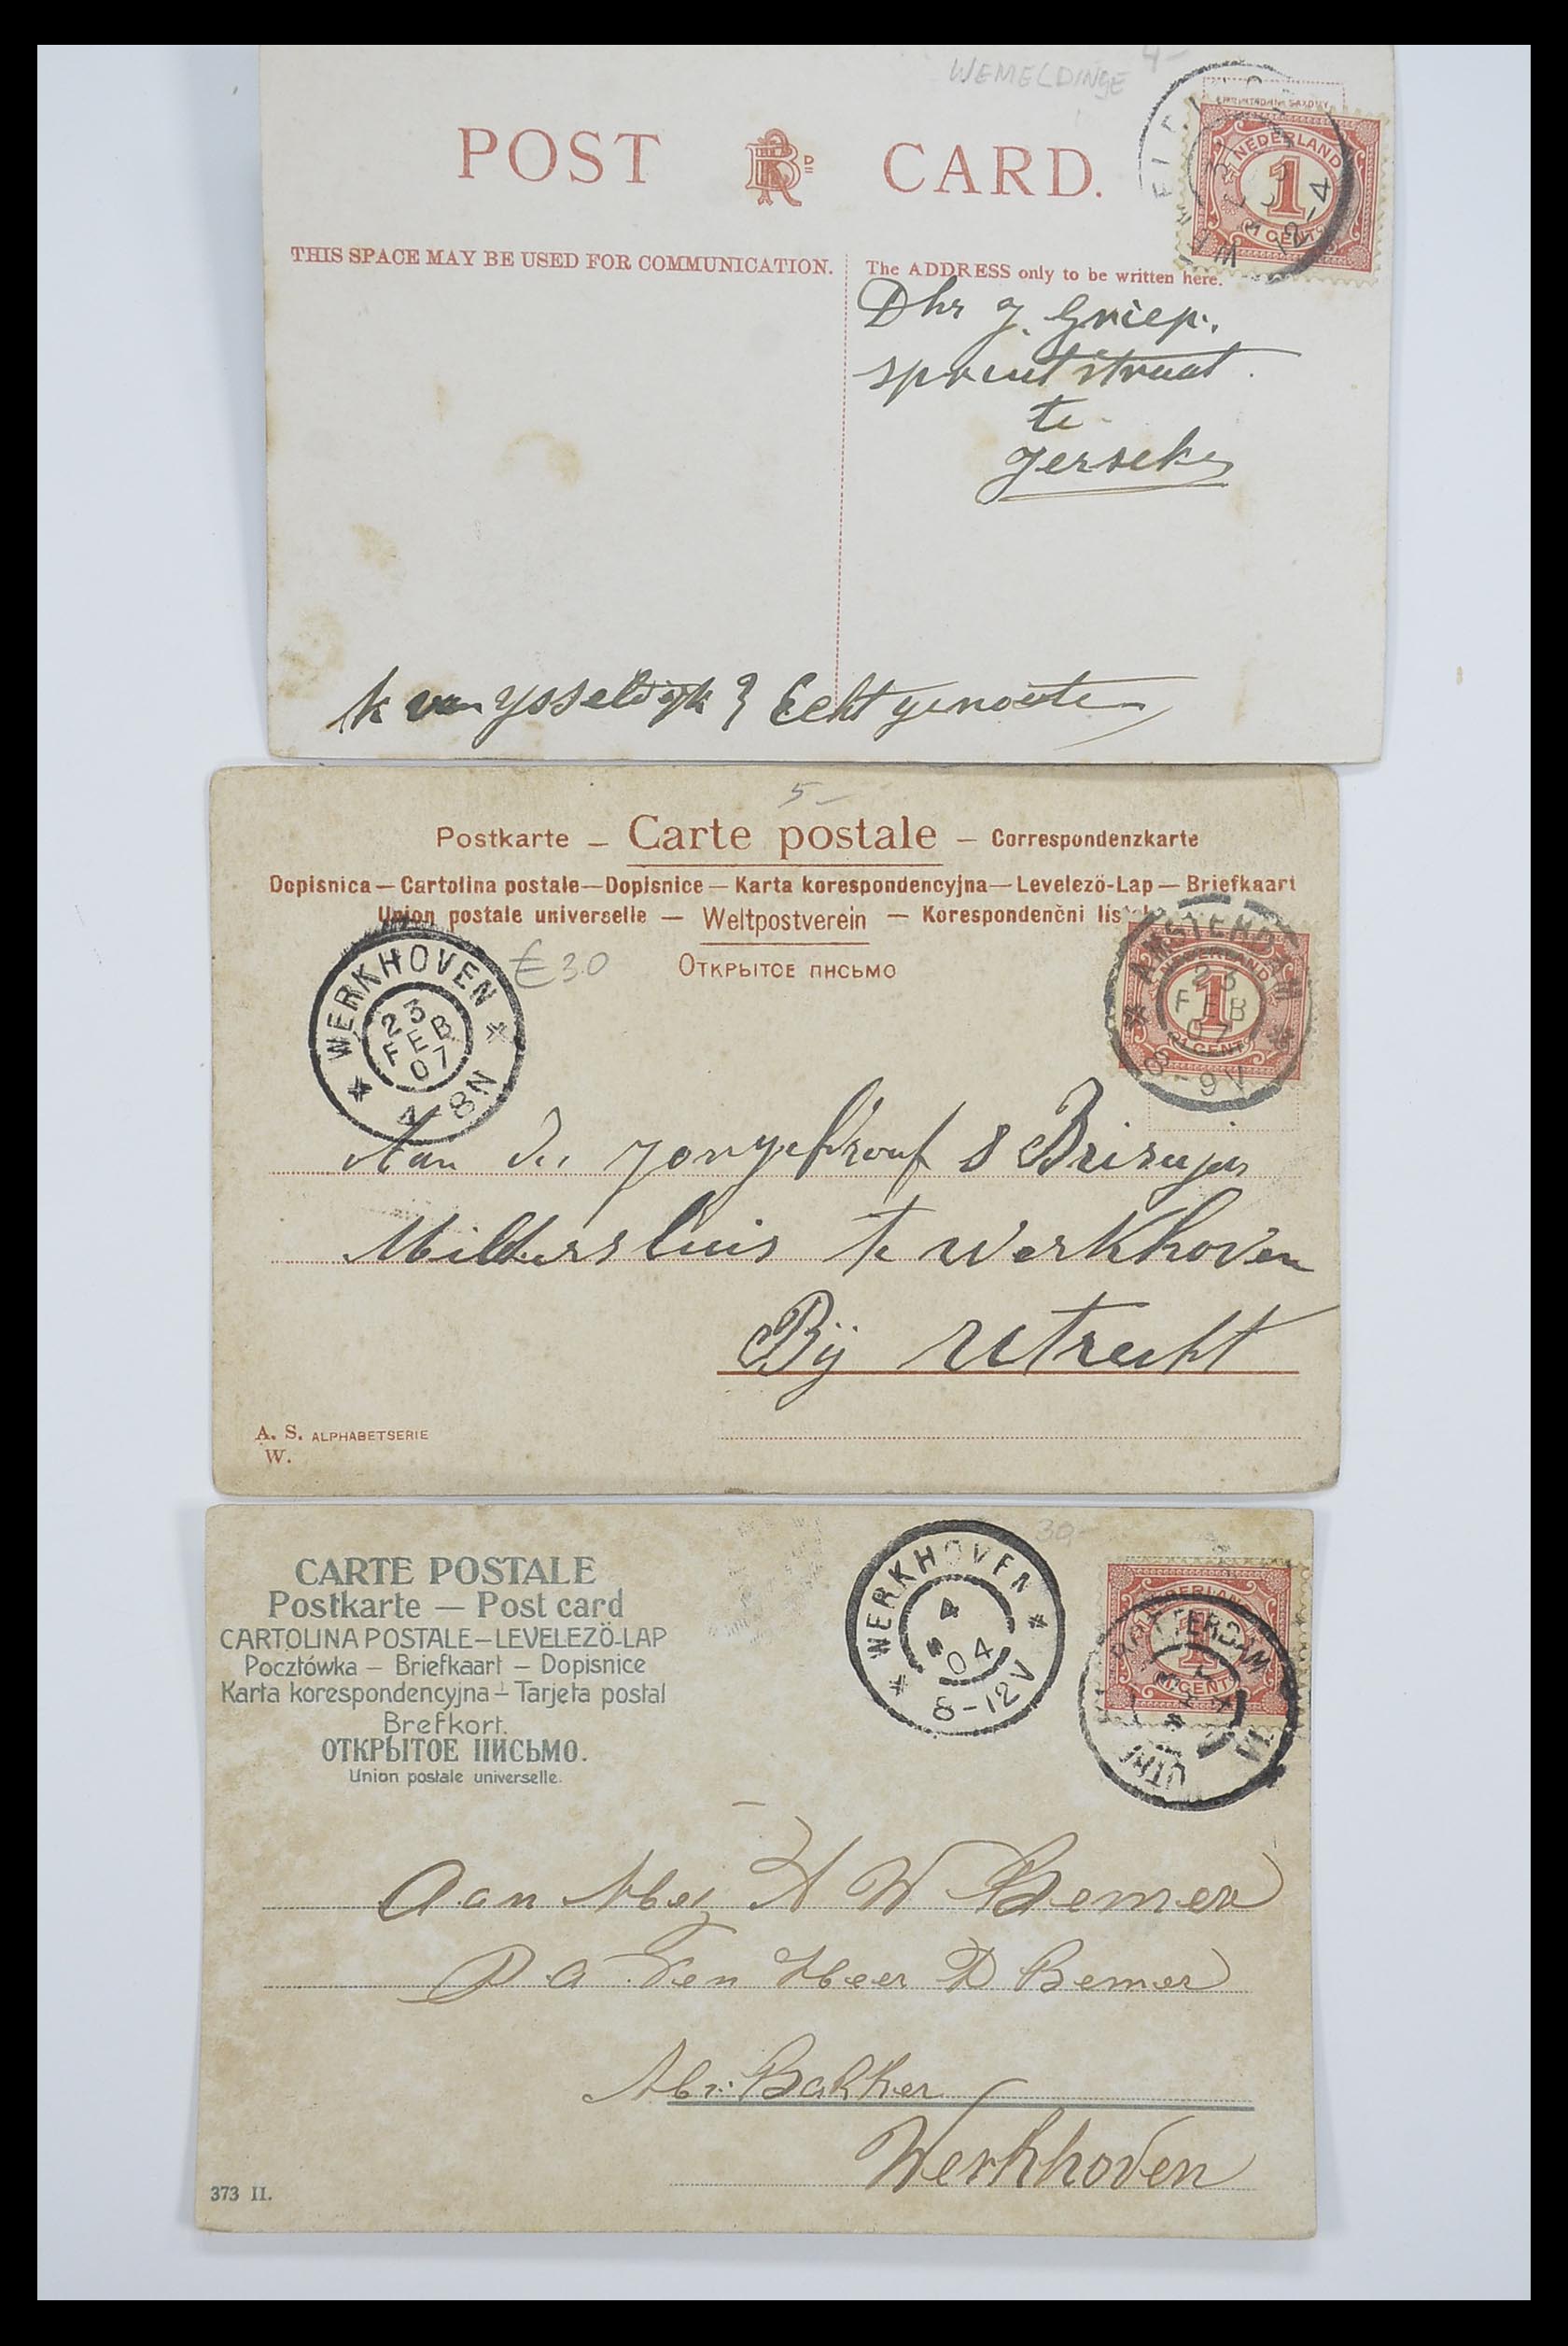 WEMELDINGE 4-
POST RB CARD.
THIS SPACE MAY BE USED FOR COMMUNICATION.
The ADDRESS only to be written here.
NEDERLAND
1
CENT
12-4
Dhr J. Griep.
spruitstraat.
te
Jerseke
K van Ysseldijk & Echtgenoote
5-
Postkarte – Carte postale – Correspondenzkarte
Dopisnica — Cartolina postale — Dopisnice — Karta korespondencyjna — Levelezö-Lap — Briefkaart
Union postale universelle — Weltpostverein — Korespondenčni
Открытое письмо
€ 30
WERKHOVEN
23
FEB
07
4-8N
AMSTERDAM
23
FEB
07
8-9V
NEDERLAND
1
1 CENT
Aan de jongefrouf
Milderslüis te Werkhoven
Bij Utrecht
A. S. ALPHABETSERIE
W.
30,-
CARTE POSTALE
Postkarte — Post card
CARTOLINA POSTALE – LEVELEZÖ-LAP
Pocztówka – Briefkaart – Dopisnice
Karta korespondencyjna – Tarjeta postal
Brefkort.
ОТКРЫТОЕ ПИСЬМО.
Union postale universelle.
WERKHOVEN
4
04
8-12V
1
CENT
Aan Mej H W Bemer
P a Den Heer D Bemer
Mr. Bakker
Werkhoven
373 II.